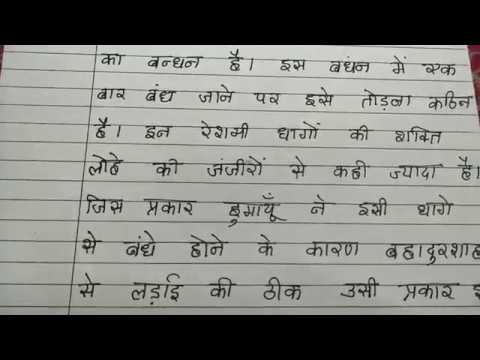 का बन्धन है। इस बधंन में एक
बार बंध जाने पर इसे तोड़ना कठिन
है। इन रेशमी धागों की शक्ति
लोहे की जंजीरों से कही ज्यादा है।
जिस प्रकार हुमायूँ ने इसी धागे
से बंधे होने के कारण बहादुरशाह
से लड़ाई की ठीक उसी प्रकार